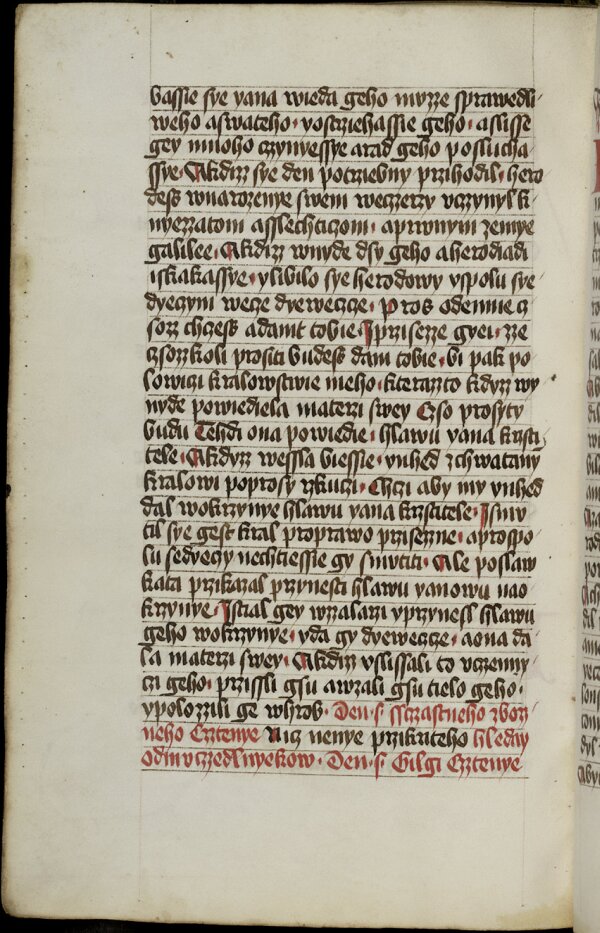 bassie sye yana wieda geho muzze sprawedli
weho aswateho· yostrziehassie geho· aslisse
gey mnoho czynyessye arad geho poslucha
ssye· Akdizz sye den potrziebny przihodil· hero
des wnarozenye swem weczerzy vczynyl k
nyezzatom asslechticzom· aprwnym zemye
galilee· Akdizz wnyde dsy geho aherodiadi
iskakassye· ylibilo sye herodowy yspolu sye
dyeczym wecze dyeweczcze· Pros odemne cz
sozz chczess adamt tobie· Iprisezze gyei· ze
czsozzkoli prositi budess dam tobie· bi pak po
lowiczi kralowstwie meho· kterazto kdyzz wy
nyde powiediela materzi swey Czso prosyty
budu Tehdi ona powiedie· hlawu yana krzsti
tele· Akdyzz wessla biessie· ynhed zchwatany
kralowi poprosy rzkuczi· Chczi aby my ynhed
dal wokrzynye hlawu yana krzstitele· Ismu
til sye gest kral proprawo prisezne· aprospo
lu sedyeczy nechtiessie gy smutiti· Ale poslaw
kata przikazal przynesti hlawu yanowu nao
krzynye· Istial gey wzzalarzi yprzynesl hlawu
geho wokrzynye· yda gy dyeweczcze· aona da
la materzi swey· Akdizz vslissali to vczenny
czi geho· prissli gsu awzali gsu tielo geho·
ypolozzili ge whrob· Den· s· ssczastneho zboz
neho Czztenye Nicz nenye przikriteho hleday
Odmuczedlnyekow· Den· s· Gilgi Czztenye